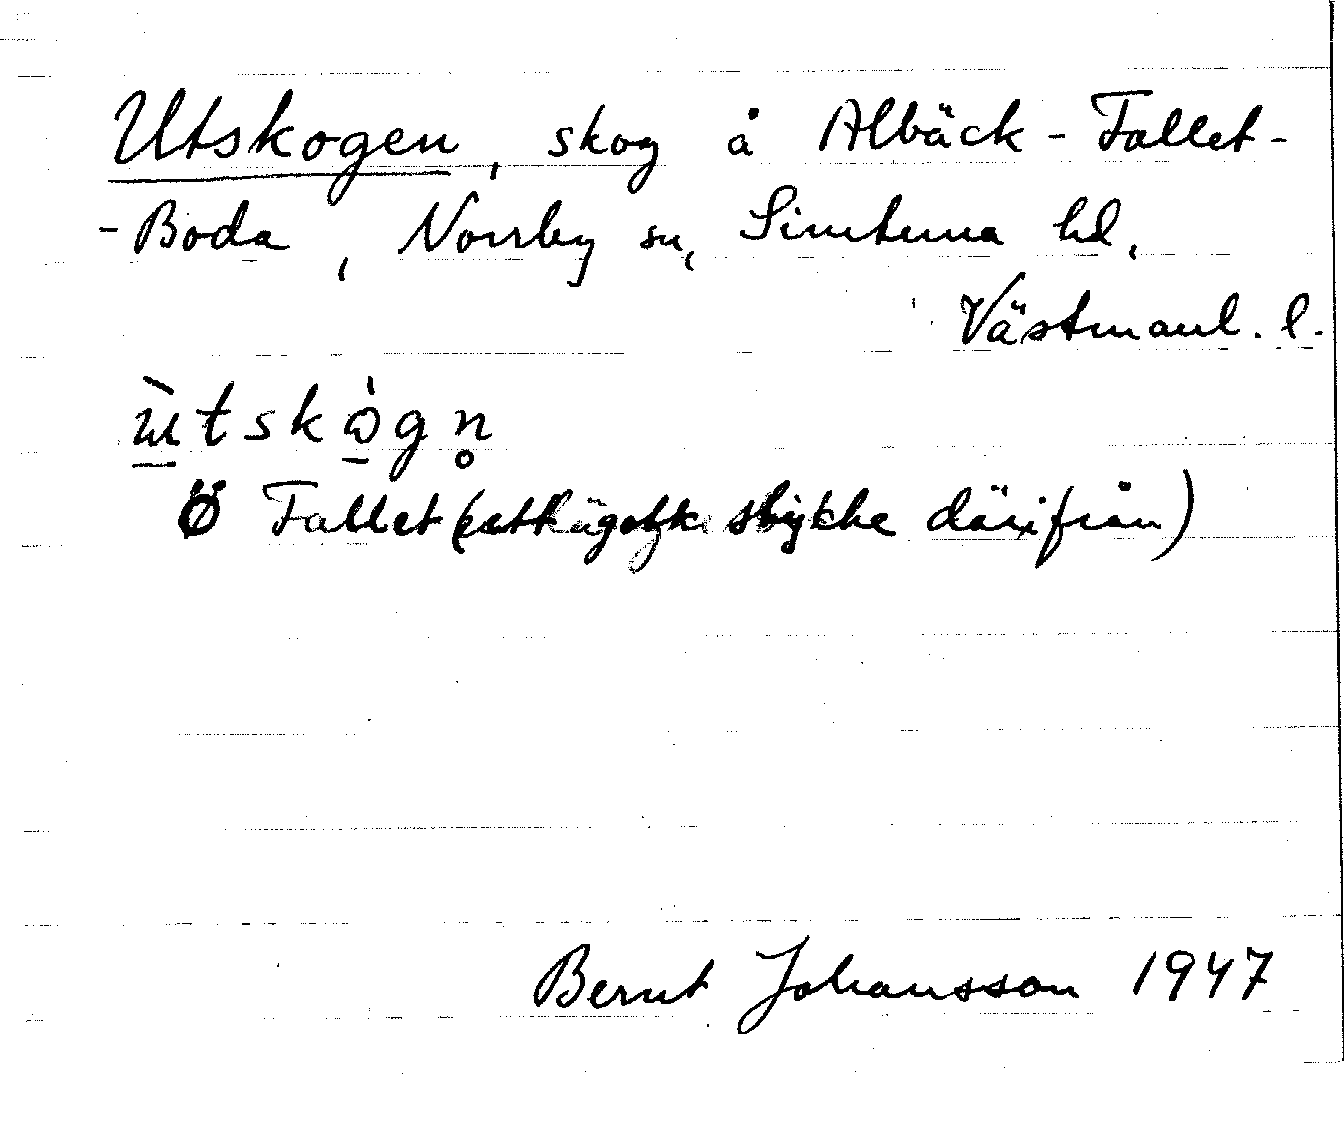 Utskogen, skog å Albäck-Fallet-
-Boda, Norrby sn, Simtuna hd,
Västmanl. l.
ɯ̀tskògn̥
Ö Fallet (ett stycke därifrån)
Bernt Johansson 1947